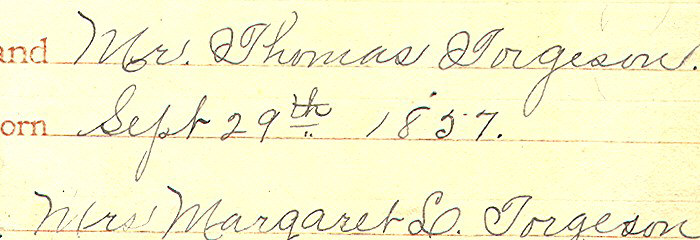 and Mr. Thomas Torgeson.
orn Sept 29th 1857.
Mrs. Margaret L. Torgeson